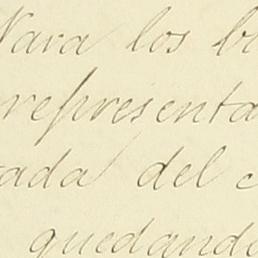 Nara los bi
represent a
ada del c
quedando